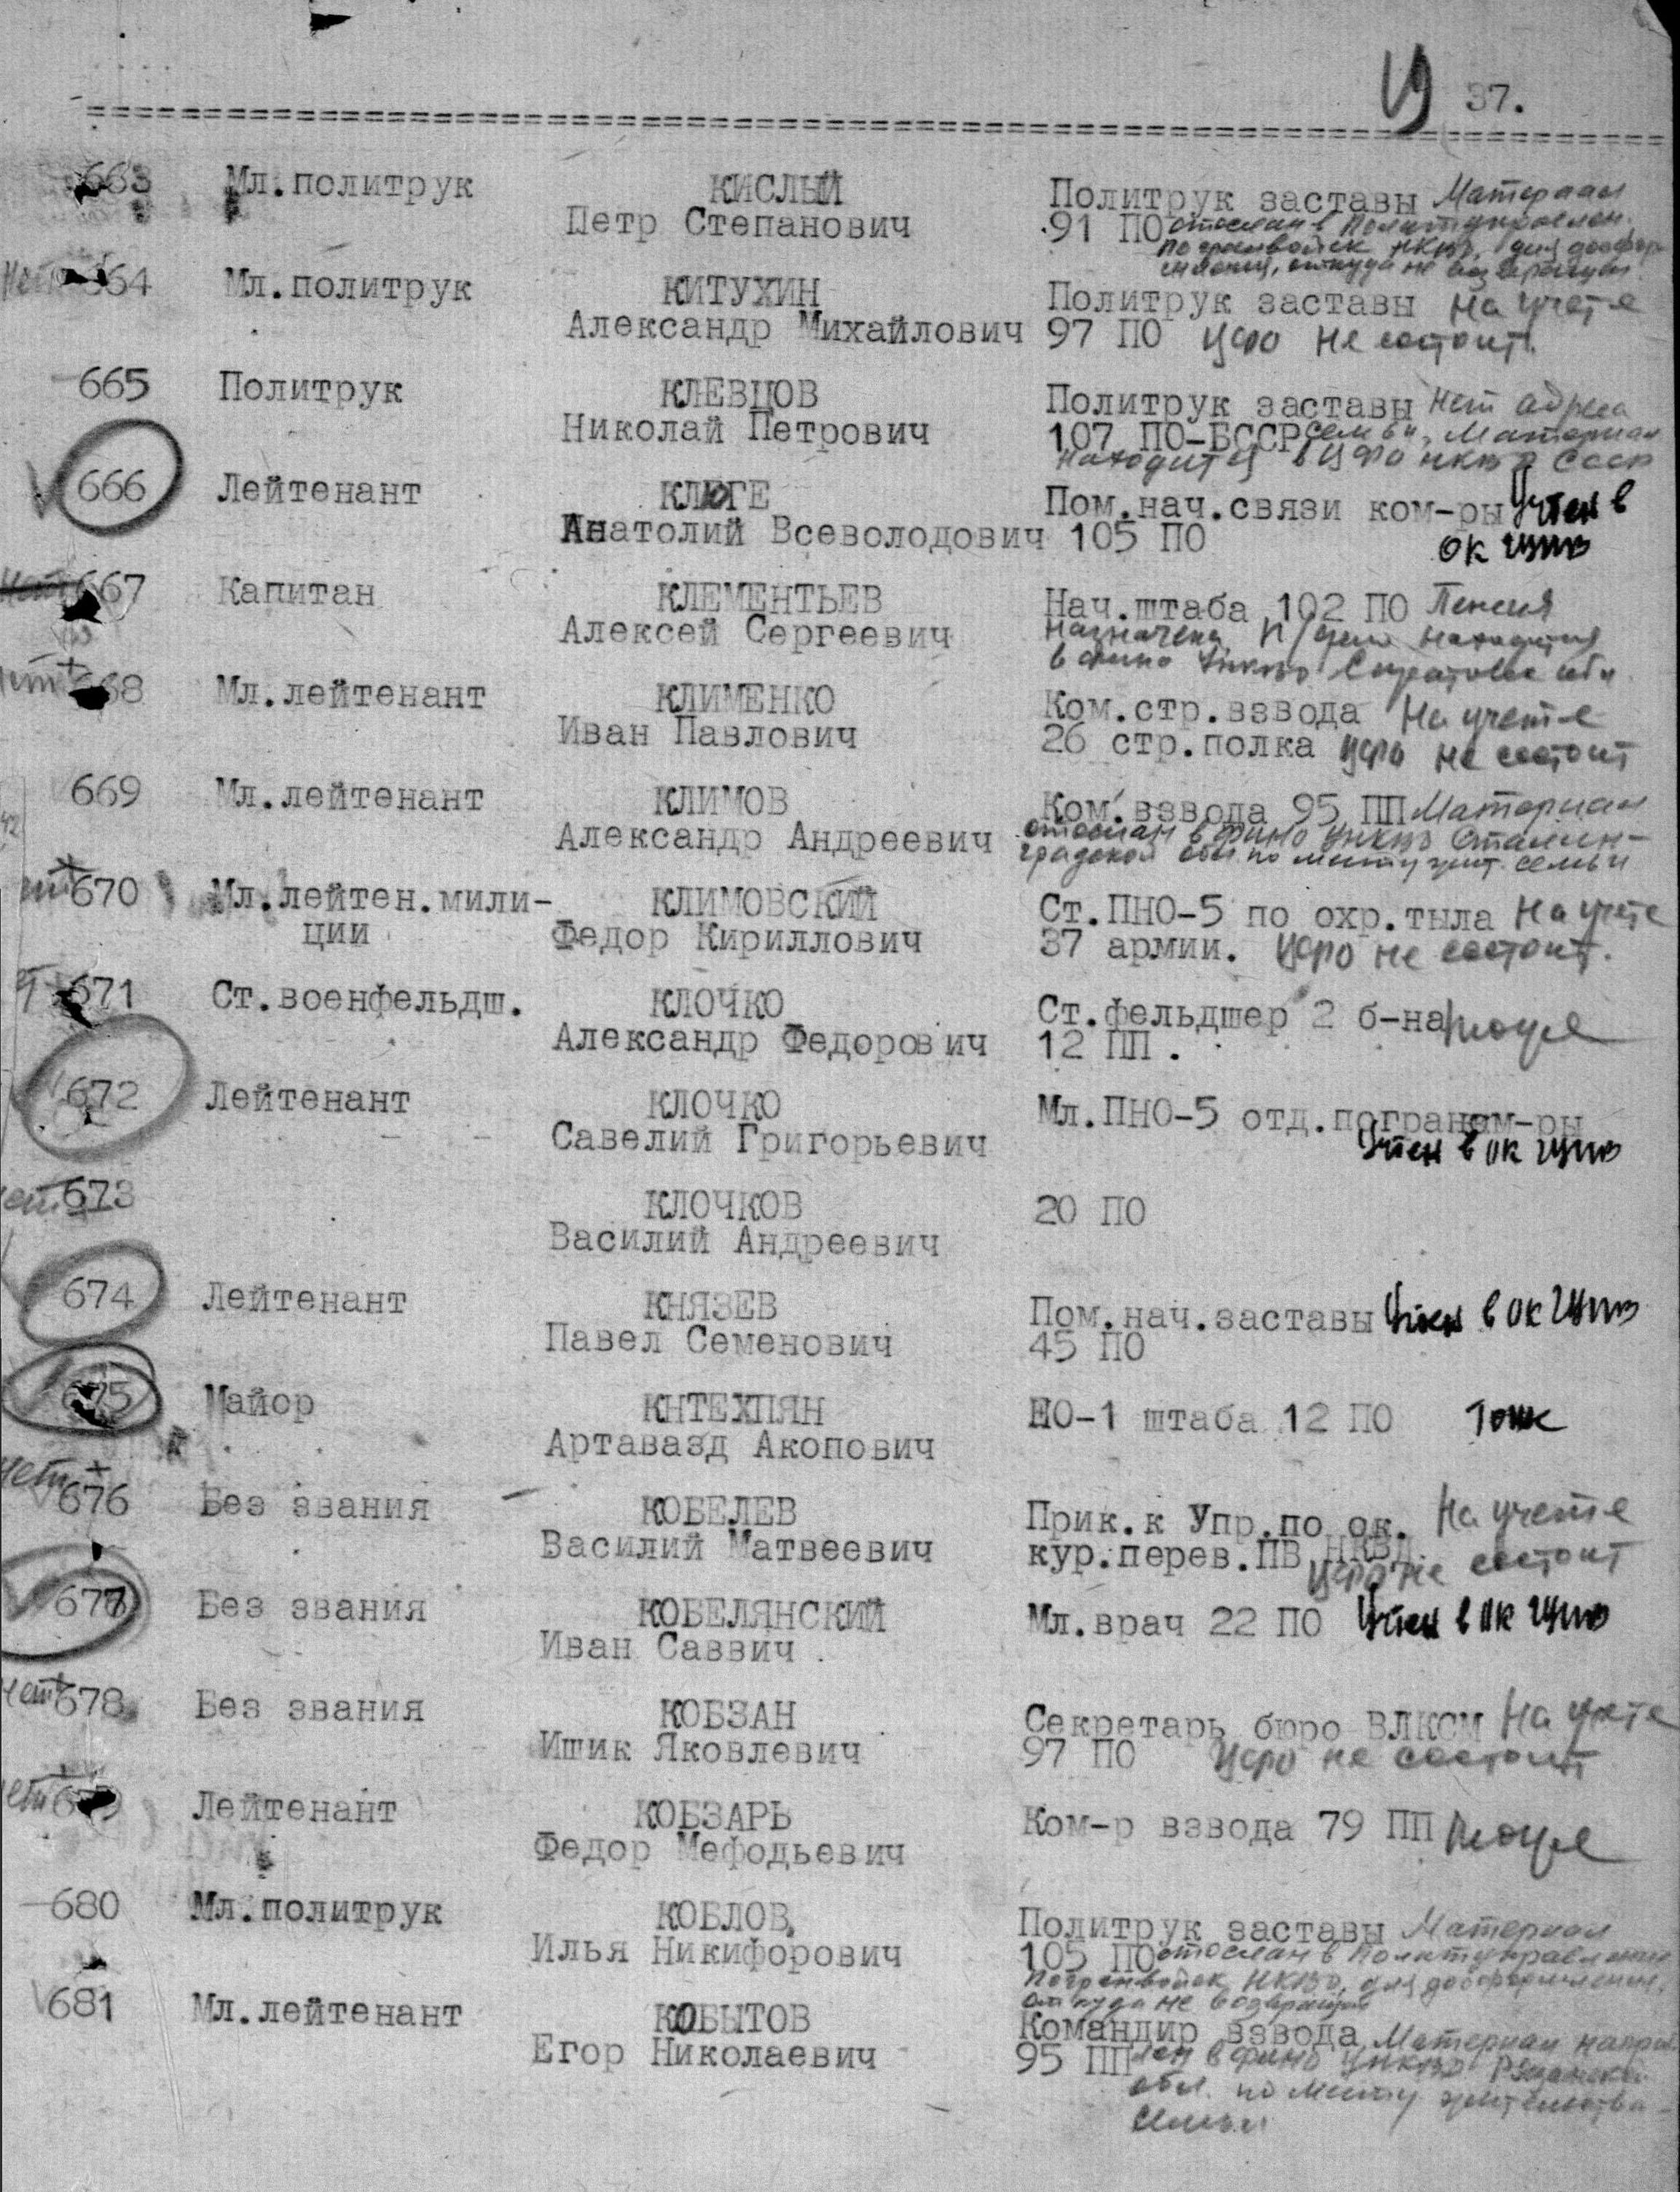 37.
663 Мл.политрук КИСЛЫЙ Политрук заставы Материал
Петр Степанович 91 ПО отослан в Политуправлен.
погранвойск НКВД, для дооформ
ления, откуда не возвращен
нет 664 Мл.политрук КИТУХИН Политрук заставы На учете
Александр Михайлович 97 ПО ЦФО не состоит.
665 Политрук КЛЕВЦОВ Политрук заставы нет адреса
Николай Петрович 107 ПО-БССР семьи. Материал
находится в ЦФО НКВД СССР
666 Лейтенант КЛЮГЕ Пом.нач.связи ком-ры Учтен в
Анатолий Всеволодович 105 ПО ОК
667 Капитан КЛЕМЕНТЬЕВ Нач.штаба 102 ПО Пенсия
Алексей Сергеевич назначена, п/дело находится
в фино УНКВД Саратовск обл.
нет 668 Мл.лейтенант КЛИМЕНКО Ком.стр.взвода На учете
Иван Павлович 26 стр.полка ЦФО не состоит
669 Мл.лейтенант КЛИМОВ Ком.взвода 95 ПП Материал
Александр Андреевич отослан в фино УНКВД Сталин-
градской обл. по месту жит. семьи
нет 670 Мл.лейтен.мили- КЛИМОВСКИЙ Ст.ПНО-5 по охр.тыла На учете
ции Федор Кириллович 37 армии. ЦФО не состоит.
671 Ст.военфельдш. КЛОЧКО Ст.фельдшер 2 б-на тоже
Александр Федорович 12 ПП.
672 Лейтенант КЛОЧКО Мл.ПНО-5 отд.погранком-ры
Савелий Григорьевич Учтен в ОК
нет 673 КЛОЧКОВ 20 ПО
Василий Андреевич
674 Лейтенант КНЯЗЕВ Пом.нач.заставы Учтен в ОК
Павел Семенович 45 ПО
675 Майор КНТЕХПЯН НО-1 штаба 12 ПО Тоже
Артавазд Акопович
нет 676 Без звания КОБЕЛЕВ Прик.к Упр.по ок. На учете
Василий Матвеевич кур.перев.ПВ НКВД. ЦФО не состоит
677 Без звания КОБЕЛЯНСКИЙ Мл.врач 22 ПО Учтен в ОК
Иван Саввич.
нет 678 Без звания КОБЗАН Секретарь бюро ВЛКСМ На учете
Ишик Яковлевич 97 ПО ЦФО не состоит
нет 679 Лейтенант КОБЗАРЬ Ком-р взвода 79 ПП тоже
Федор Мефодьевич
680 Мл.политрук КОБЛОВ Политрук заставы Материал
Илья Никифорович 105 ПО отослан в Политуправление
Погранвойск НКВД, для дооформления,
откуда не возвращен
681 Мл.лейтенант КОБЫТОВ Командир взвода Материал направ
Егор Николаевич 95 ПП лен в фино УНКВД Рязанской
обл. по месту жительства
семьи